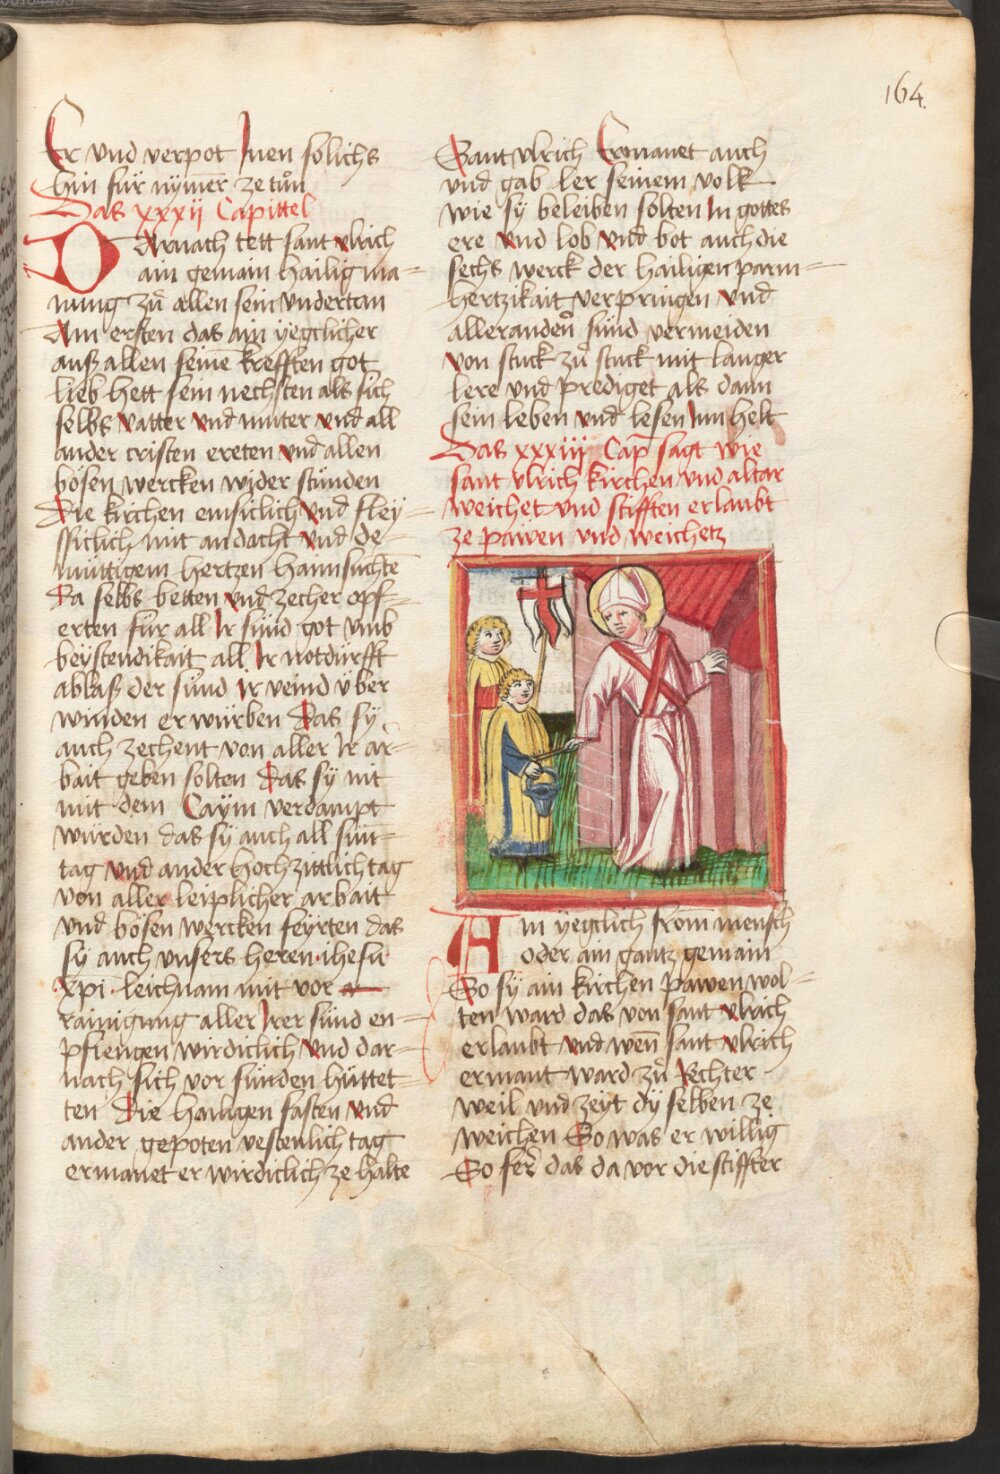 164.
Er vnd verpot Inen solichs
hin für nÿmer ze tůn
Das xxxij Capittel
Darnach tett sant vlrich
ain gemain hailig ma=
nung zů allen sein vndertan
Am ersten das ain yegclicher
auß allen seinē krefften got
lieb hett sein nechsten als sich
selbs vatter vnd muter vnd all
ander cristen ereten vnd allen
bösen wercken wider stůnden
Die kirchen emsiclich vnd fleÿ=
ssiclich mit andacht vnd de=
müttigem hertzen haimsuchtē
Da selbs betten vnd zecher opf=
erten für all Ir sünd got vmb
beÿstendikait all Ir notdurfft
ablaß der sünd Ir veind über
winden erwürben Das sÿ
auch zechent von aller Ir ar=
bait geben solten Das sÿ nit
mit dem Caÿm verdampt
würden das sÿ auch all sun=
tag vnd ander hochzittlich tag
von aller leiplicher arbait
vnd bösen wercken feÿrten das
sÿ auch vnsers heren ihesu
xpi leichnam mit vor
rainigung aller Irer sünd en=
pfiengen wirdiclich vnd dar=
nach sich vor sünden hüttet=
ten Die hailigen fasten vnd
ander gepoten vestenlich tag
ermanet er wirdiclich ze haltē
Sant vlrich Ermanet auch
vnd gab ler seinem volk
wie sÿ beleiben solten In gottes
ere vnd lob vnd bot auch die
sechs werck der hailigen parm=
hertzikait verpringen vnd
aller anden sünd vermeiden
von stuck zů stuck mit langer
lere vnd prediget als dann
sein leben vnd lesen Inn helt
Das xxxiij Cap sagt wie
sant vlrich kirchen vnd altar
weichet vnd stifften erlaubt
ze pawen vnd weichetz
Ain yegclich from mensch
oder ain gantz gemain
So sÿ ain kirchen pawen wol=
ten ward das von sant vlrich
erlaubt vnd wen sant vlrich
ermant ward zů Rechter
weil vnd zeÿt dÿ selben ze
weichen So was er willig
So fer das da vor die stiffter